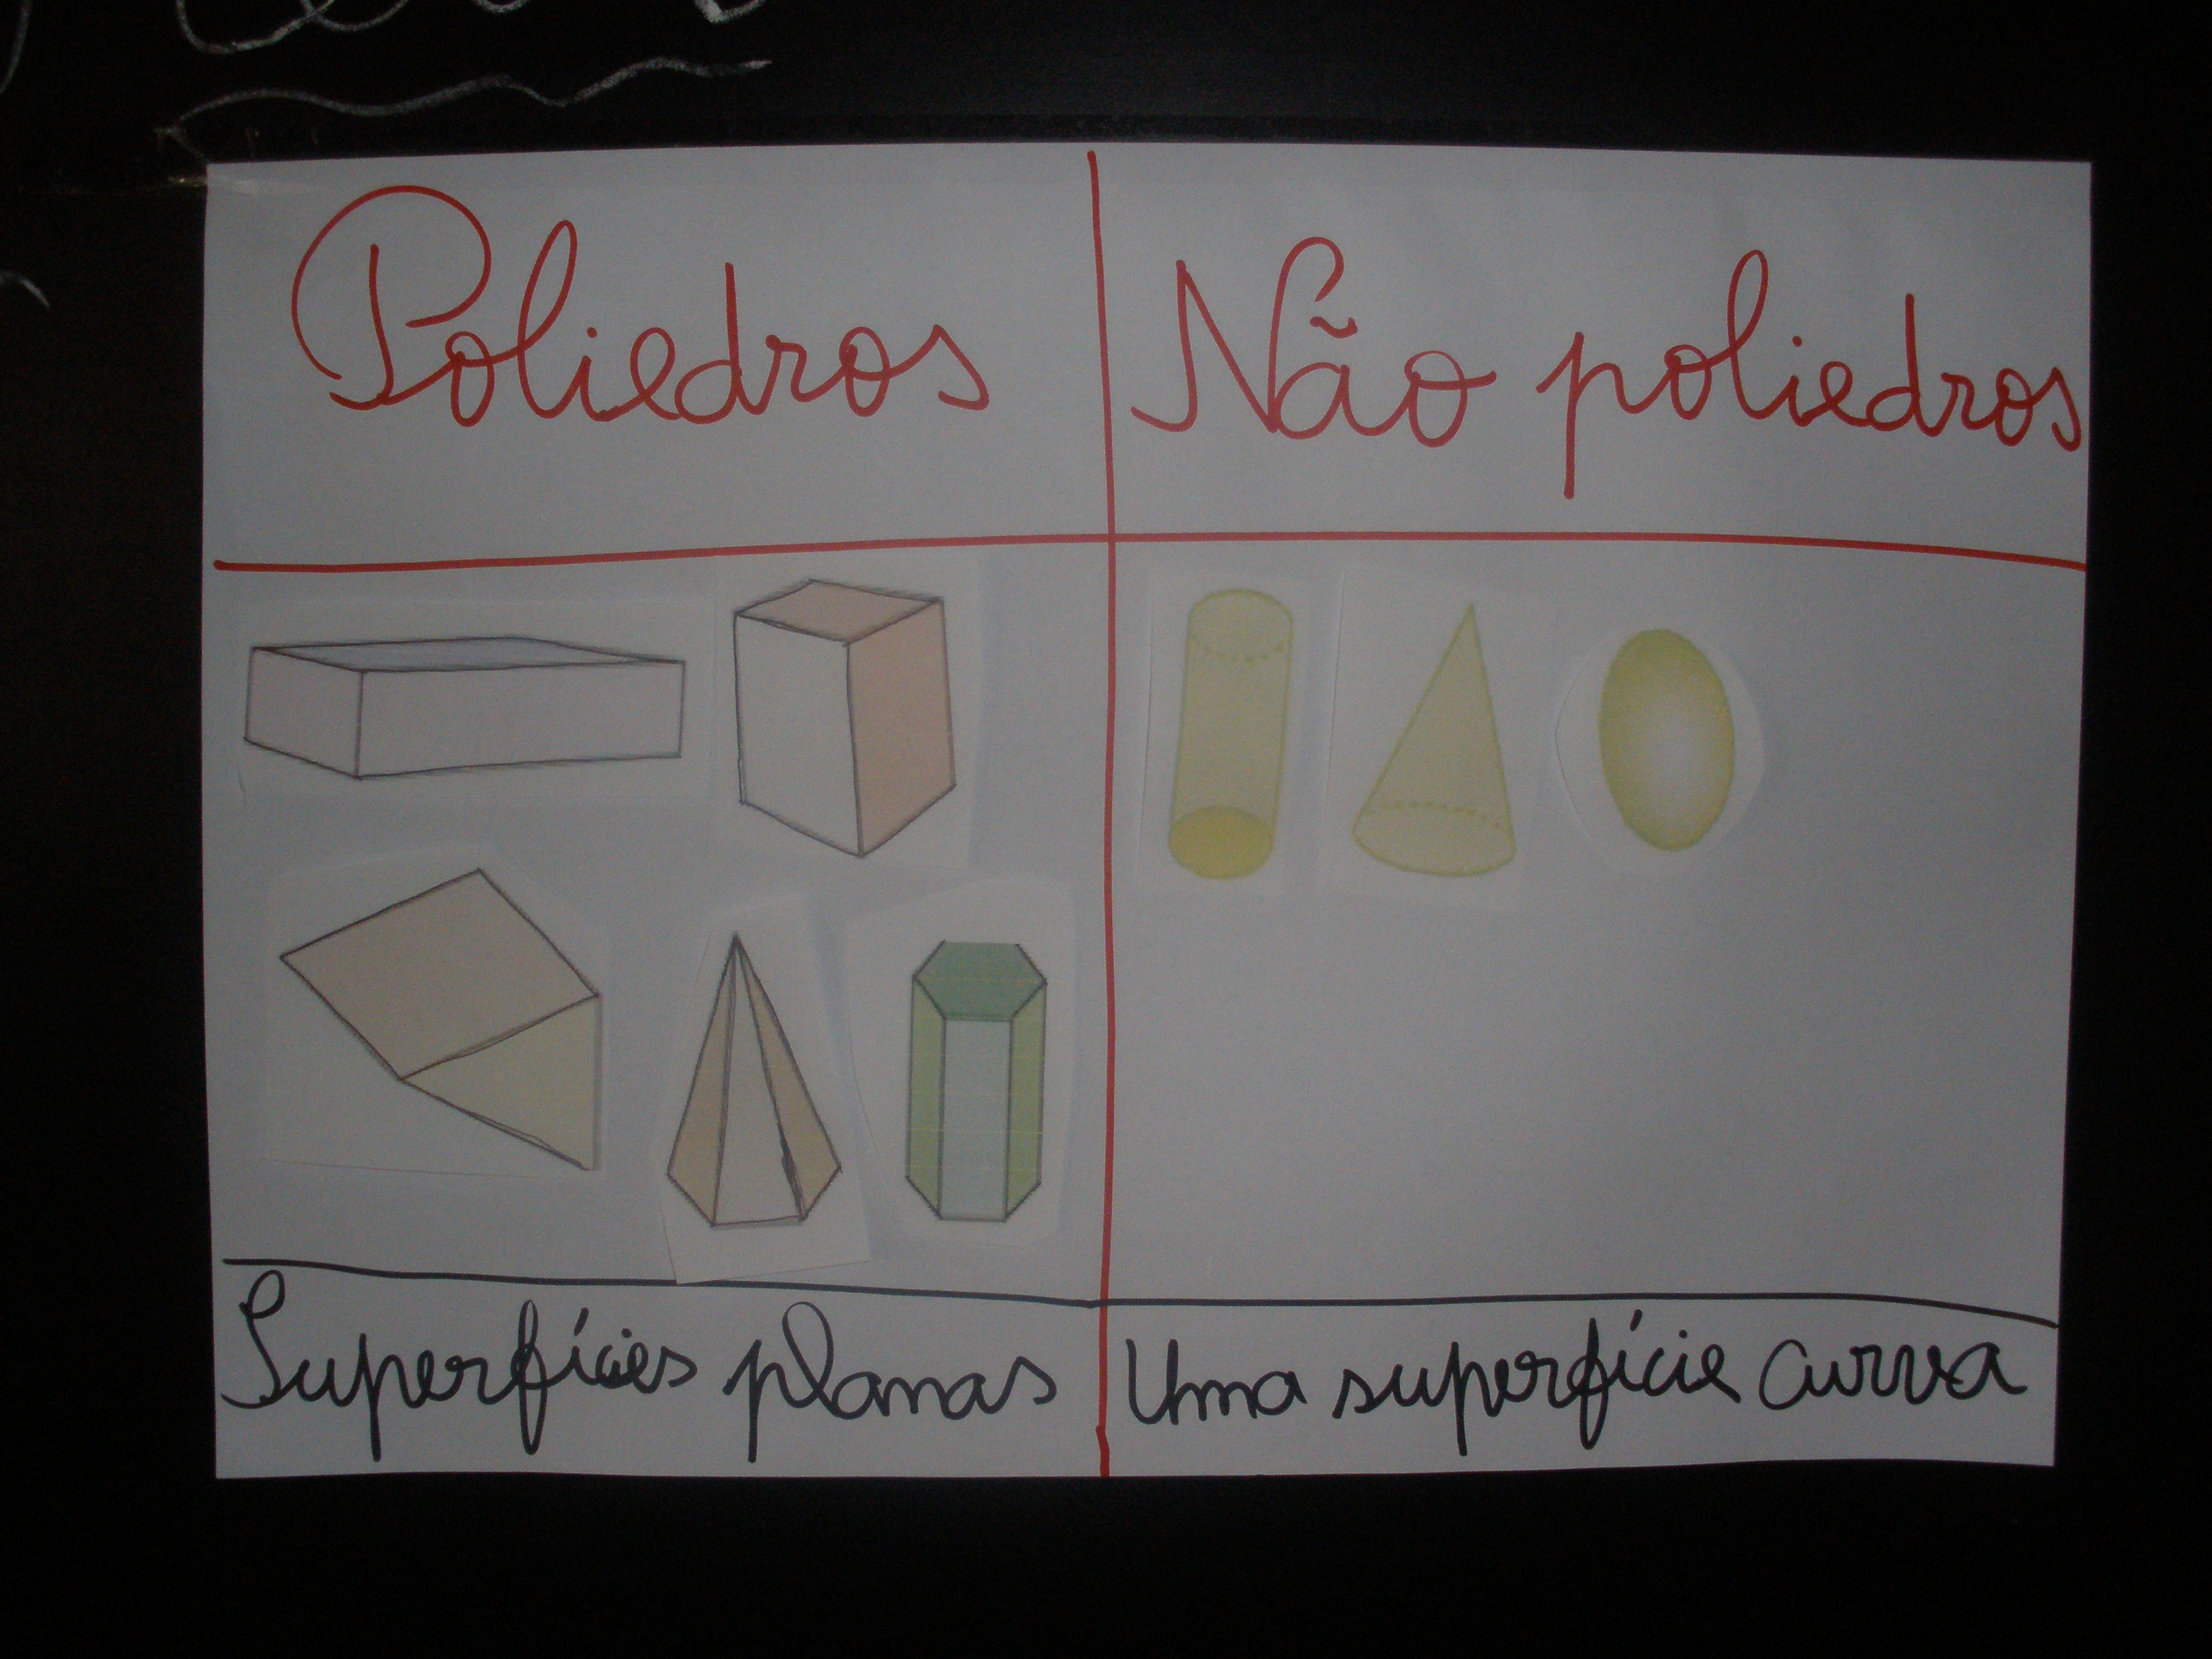 Poliedros
Não poliedros
Superfícies planas
Uma superfície curva